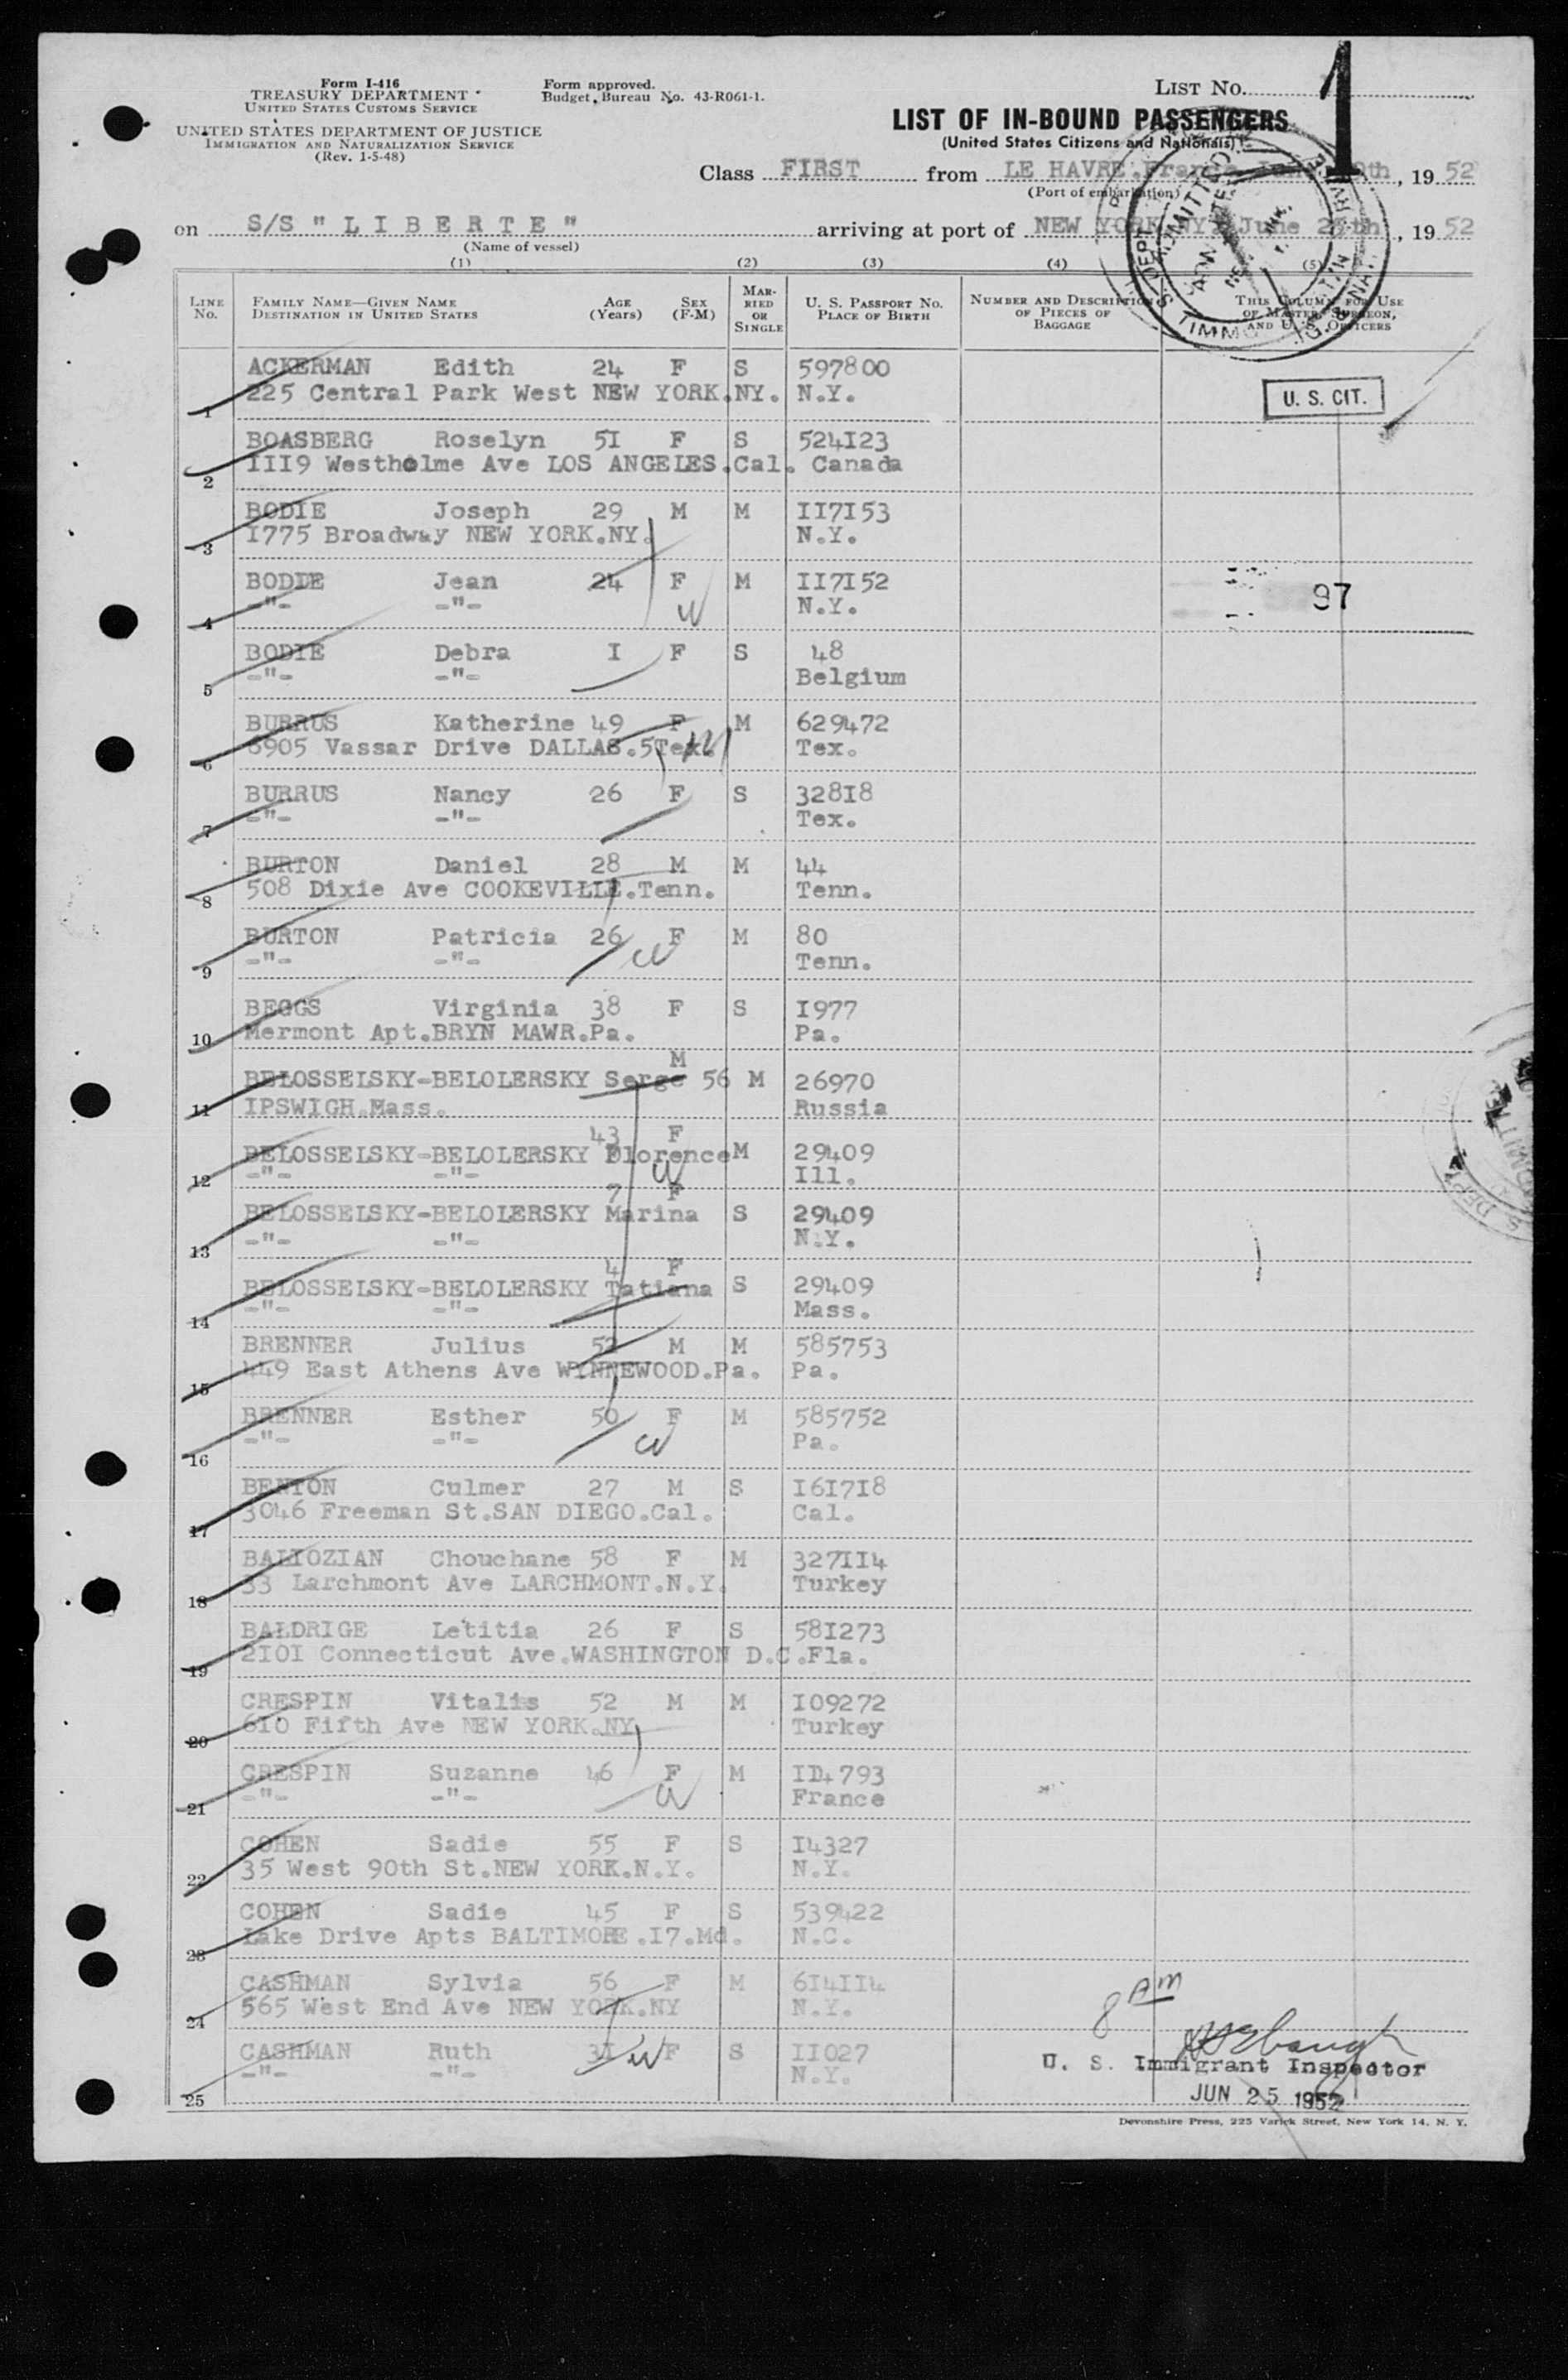 Form I-416
TREASURY DEPARTMENT
UNITED STATES CUSTOMS SERVICE
UNITED STATES DEPARTMENT OF JUSTICE
IMMIGRATION AND NATURALIZATION SERVICE
(Rev. 1-5-48)
Form approved.
Budget Bureau No. 43-R061-1.
LIST NO. 1
LIST OF IN-BOUND PASSENGERS
(United States Citizens and Nationals)
Class FIRST from LE HAVRE.France , 19 52
(Port of embarkation)
on S/S " L I B E R T E " arriving at port of NEW YORK NY. June , 19 52
(Name of vessel)
(1) (2) (3) (4) (5)
LINE No. FAMILY NAME—GIVEN NAME DESTINATION IN UNITED STATES AGE (Years) SEX (F-M) MARRIED OR SINGLE U. S. PASSPORT NO. PLACE OF BIRTH NUMBER AND DESCRIPTION OF PIECES OF BAGGAGE THIS COLUMN FOR USE OF MASTER, SURGEON, AND U. S. OFFICERS
ACKERMAN Edith 24 F S 597800
1 225 Central Park West NEW YORK.NY. N.Y. U. S. CIT.
BOASBERG Roselyn 5I F S 524I23
2 III9 Westholme Ave LOS ANGELES.Cal. Canada
BODIE Joseph 29 M M II7I53
3 I775 Broadway NEW YORK.NY. N.Y.
BODIE Jean 24 F M II7I52
4 -"- -"- W N.Y. 97
BODIE Debra I F S 48
5 -"- -"- Belgium
BURRUS Katherine 49 F M 629472
6 6905 Vassar Drive DALLAS.5Tex. Tex.
BURRUS Nancy 26 F S 328I8
7 -"- -"- Tex.
BURTON Daniel 28 M M 44
8 508 Dixie Ave COOKEVILLE.Tenn. Tenn.
BURTON Patricia 26 F M 80
9 -"- -"- W Tenn.
BEGGS Virginia 38 F S I977
10 Mermont Apt.BRYN MAWR.Pa. Pa.
M
BELOSSELSKY-BELOLERSKY Serge 56 M 26970
11 IPSWIGH.Mass. Russia
43 F
BELOSSELSKY-BELOLERSKY Florence M 29409
12 -"- -"- W Ill.
7 F
BELOSSELSKY-BELOLERSKY Marina S 29409
13 -"- -"- N.Y.
4 F
BELOSSELSKY-BELOLERSKY Tatiana S 29409
14 -"- -"- Mass.
BRENNER Julius 52 M M 585753
15 449 East Athens Ave WYNNEWOOD.Pa. Pa.
BRENNER Esther 50 F M 585752
16 -"- -"- W Pa.
BENTON Culmer 27 M S I6I7I8
17 3046 Freeman St.SAN DIEGO.Cal. Cal.
BALIOZIAN Chouchane 58 F M 327II4
18 33 Larchmont Ave LARCHMONT.N.Y. Turkey
BALDRIGE Letitia 26 F S 58I273
19 2I0I Connecticut Ave.WASHINGTON D.C.Fla.
CRESPIN Vitalis 52 M M I09272
20 6I0 Fifth Ave NEW YORK.NY Turkey
CRESPIN Suzanne 46 F M
21 -"- -"- W France
COHEN Sadie 55 F S I4327
22 35 West 90th St.NEW YORK.N.Y. N.Y.
COHEN Sadie 45 F S 539422
23 Lake Drive Apts BALTIMORE.I7.Md. N.C.
CASHMAN Sylvia 56 F M 6I4II4
24 565 West End Ave NEW YORK.NY N.Y. 8 AM
CASHMAN Ruth 3I W F S II027
25 -"- -"- N.Y.
U. S. Immigrant Inspector
JUN 25 1952
Devonshire Press, 225 Varick Street, New York 14, N. Y.